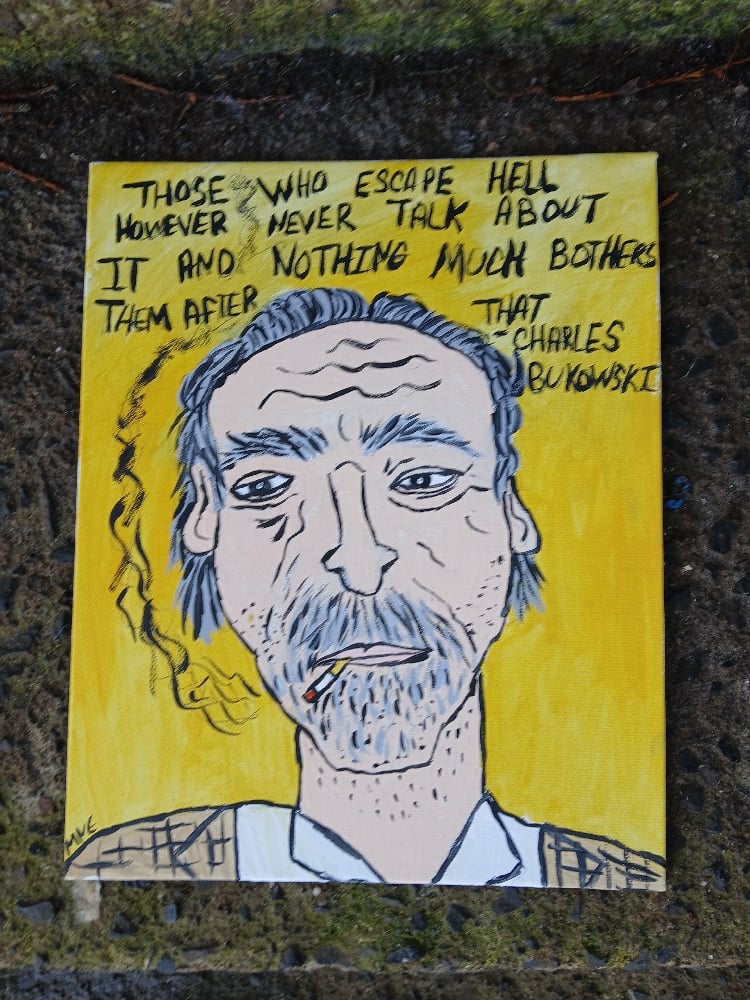 THOSE WHO ESCAPE HELL
HOWEVER NEVER TALK ABOUT
IT AND NOTHING MUCH BOTHERS
THEM AFTER THAT
-CHARLES
BUKOWSKI
MVE